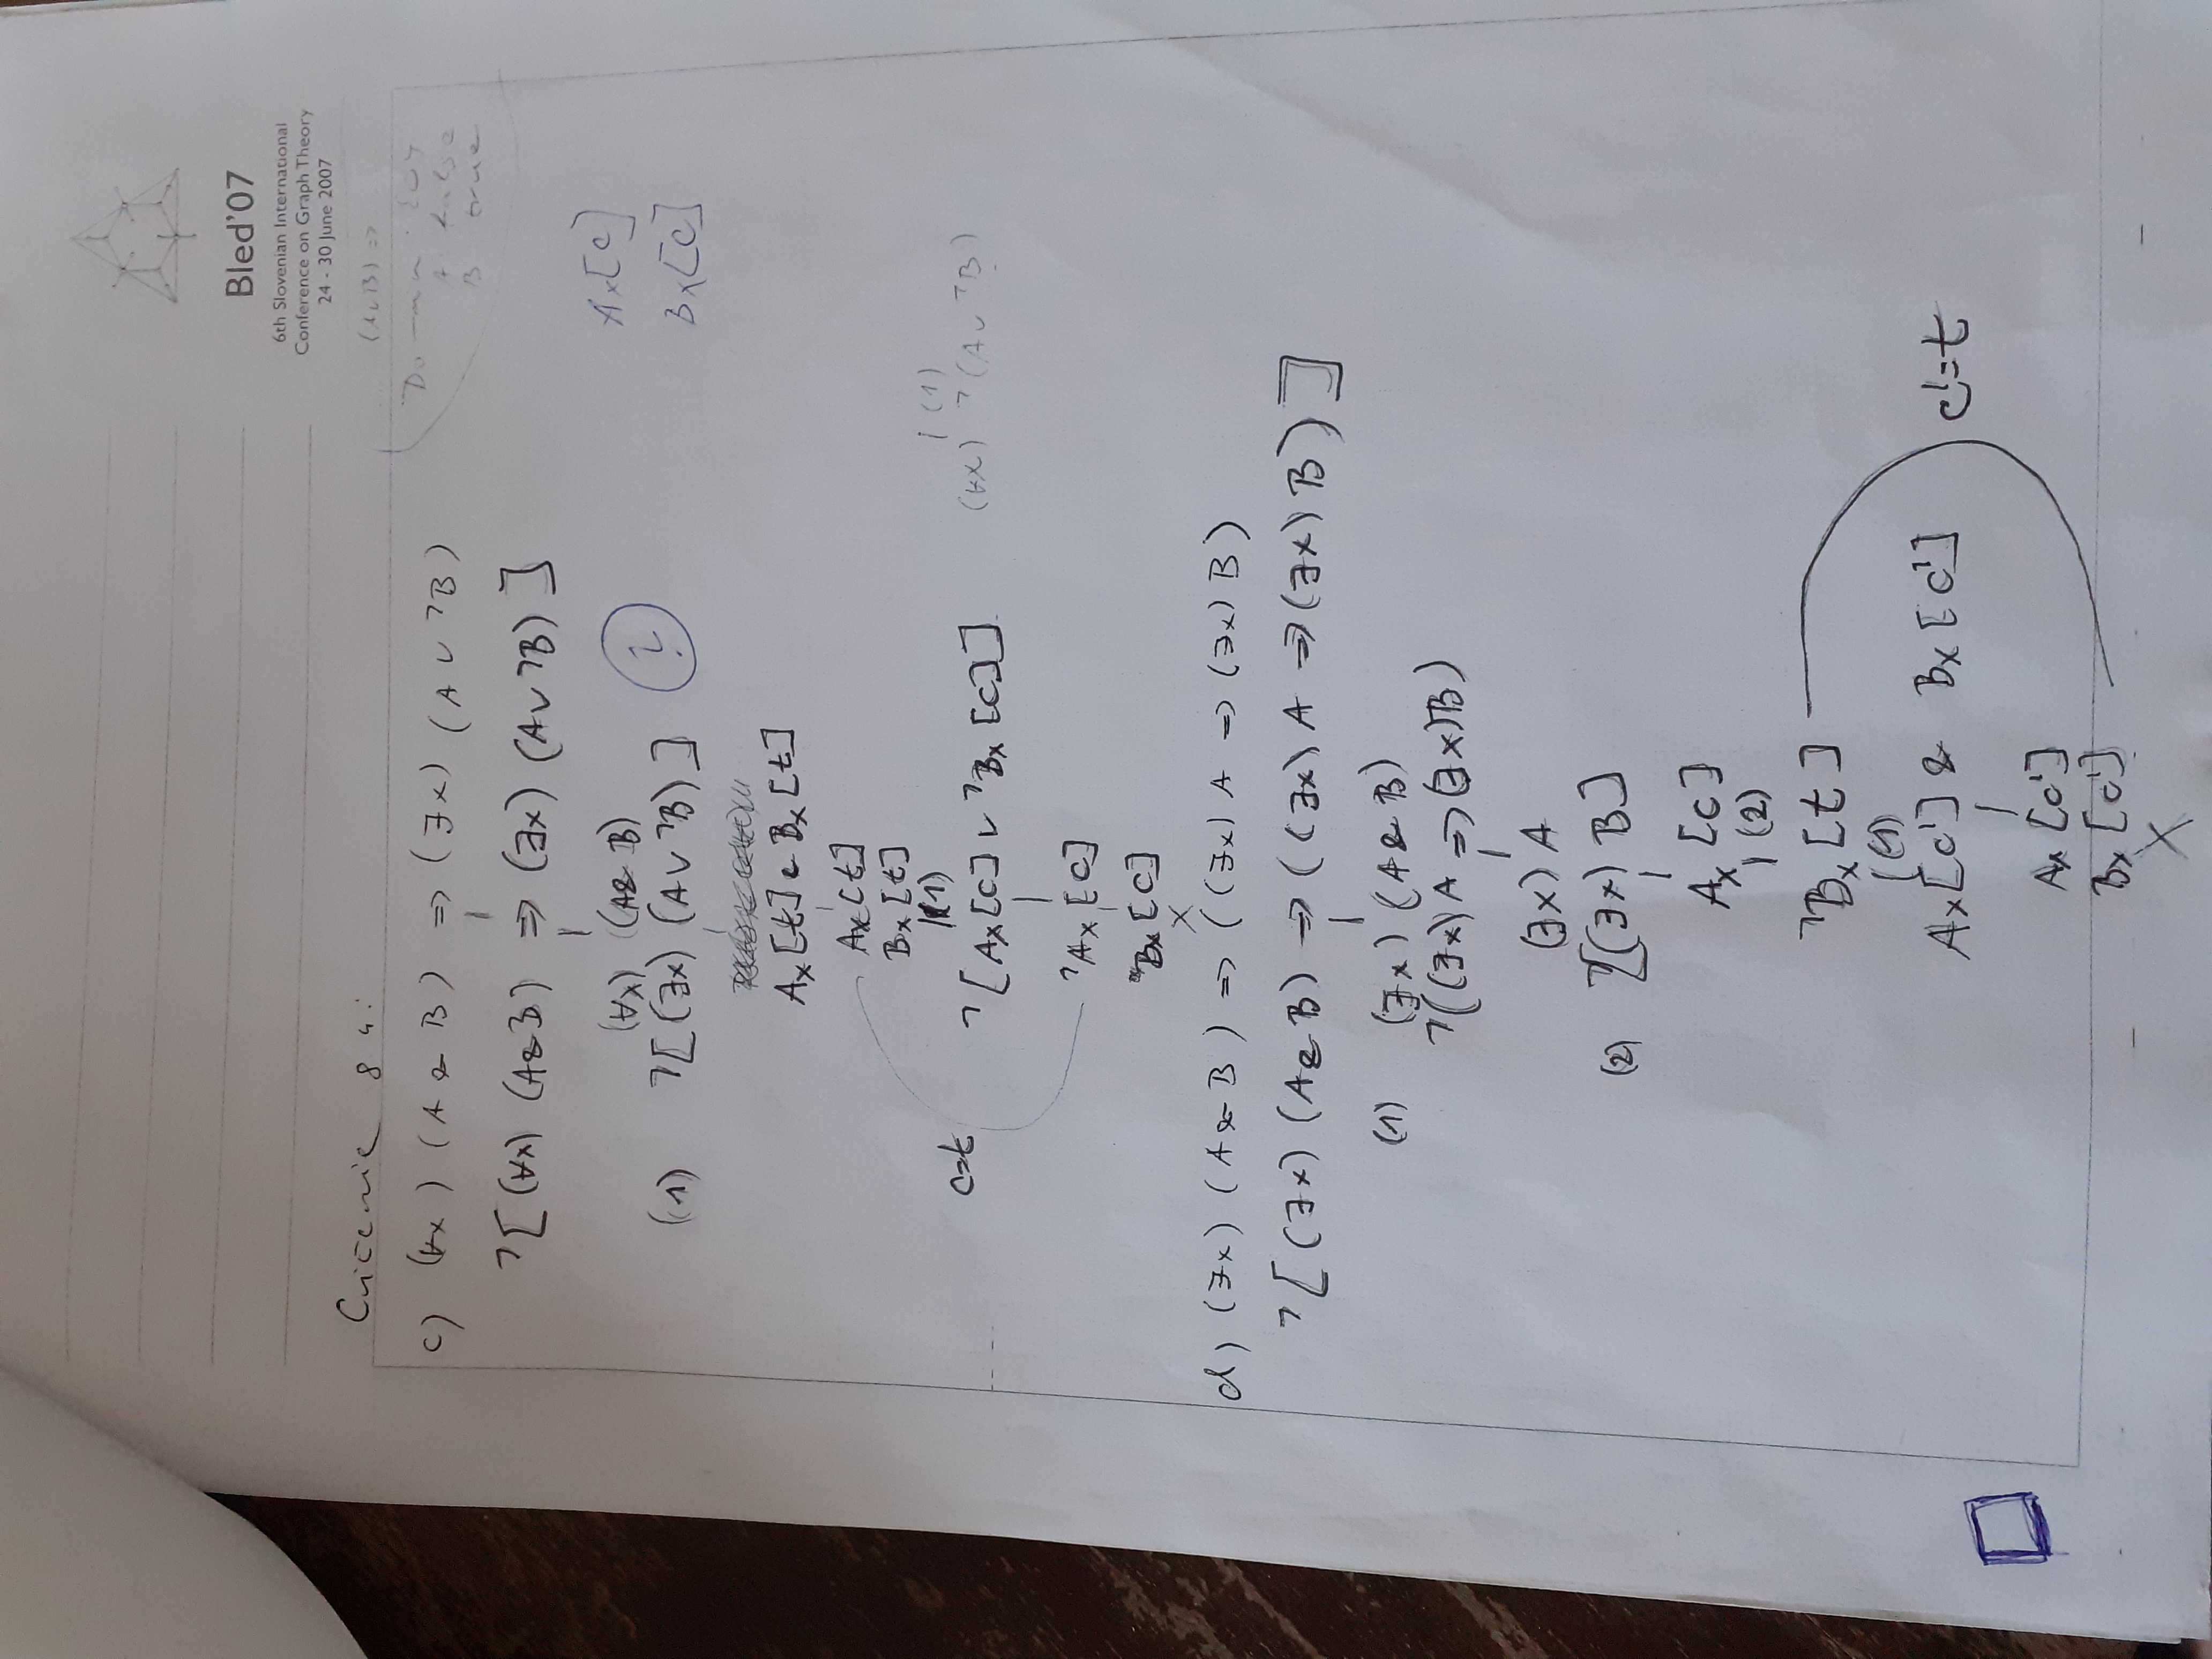 Bled'07
6th Slovenian International
Conference on Graph Theory
24 - 30 June 2007
Cvicenie 8 4:
(A∨B) =>
A false
B true
c) (∀x) (A & B) => (∃x) (A ∨ ¬B)
¬[(∀x) (A&B) => (∃x) (A∨¬B)]
(∀x) (A& B)
(1) ¬[(∃x) (A∨¬B)] ?
Ax[c]
Bx[c]
Ax[t] & Bx[t]
Ax[t]
Bx[t]
(1)
c=t ¬[Ax[c] ∨ ¬Bx[c]]
| (1)
(∀x) ¬(A∨¬B)
¬Ax[c]
Bx[c]
X
d) (∃x) (A & B) => ((∃x) A => (∃x) B)
¬[(∃x) (A & B) => ((∃x) A => (∃x) B)]
(1) (∃x) (A & B)
¬((∃x) A => (∃x) B)
(∃x) A
(2) ¬[(∃x) B]
Ax [c]
| (2)
¬Bx [t]
| (1)
Ax[c'] & Bx[c'] c'=t
Ax [c']
Bx [c']
X